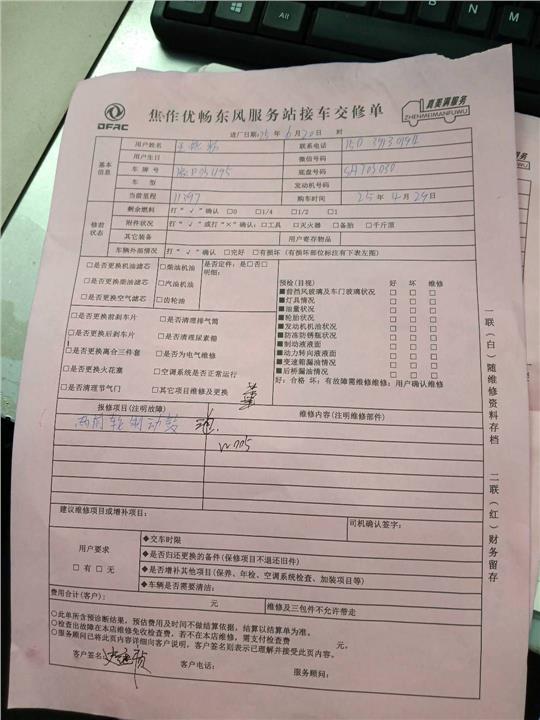 DFAC
焦作优畅东风服务站接车交修单
真美满服务
ZHENMEIMANFUWU
进厂日期:25 年 6 月 20 日 时
基本信息
用户姓名
联系电话
用户生日
微信号码
车牌号
底盘号码
车型
发动机号码
当前里程 11397
购车时间 25 年 4 月 29 日
修前状态
剩余燃料 打“√”确认 □0 □1/4 □1/2 □1
附件状况 打“√”或打“×”确认:□工具 □灭火器 □备胎 □千斤顶
其它装备 用户寄存物品
车辆外部情况 打“√”确认 □完好 □有损坏(有损坏部位标注有下表左图)
□是否更换机油滤芯 □柴油机油 是否定件:是□否□
明细:
□是否更换柴油滤芯 □汽油机油
□是否更换空气滤芯 □齿轮油
□是否更换前刹车片 □是否清理排气筒
□是否更换后刹车片 □是否清理尿素箱
□是否更换离合三件套 □是否为电气维修
□是否更换火花塞 □空调系统是否正常运行
□是否清理节气门 □其它项目维修及更换
预检(目视) 好 坏 维修
■前挡风玻璃及车门玻璃状况 □ □ □
■灯具情况 □ □ □
■油量状况 □ □ □
■轮胎状况 □ □ □
■发动机机油状况 □ □ □
■防冻防锈瓶状况 □ □ □
■制动液液面 □ □ □
■动力转向液液面 □ □ □
■变速箱漏油情况 □ □ □
■后桥漏油情况 □ □ □
好:合格 坏:有故障需维修维修:用户确认维修
报修项目(注明故障) 维修内容(注明维修部件)
两前轮制动鼓
建议维修项目或增补项目:
司机确认签字:
用户要求
□有 □无
◆交车时限
◆是否归还更换的备件(保修项目不退还旧件)
◆是否增补其他项目(保养、年检、空调系统检查、加装项目等)
◆车辆是否需要清洁:
费用合计(客户): 元 维修及三包件不允许带走
○此单所含预诊断结果,预估费用及时间不做结算依据,结算以结算单为准。
○检查出故障在本店维修免收检查费,若不在本店维修,需支付检查费 元。
○服务顾问已将此页内容详细向客户说明,客户签名则表示已理解并接受此页内容。
客户签名:
客户电话: 服务顾问:
一联(白)随维修资料存档
二联(红)财务留存
Alt